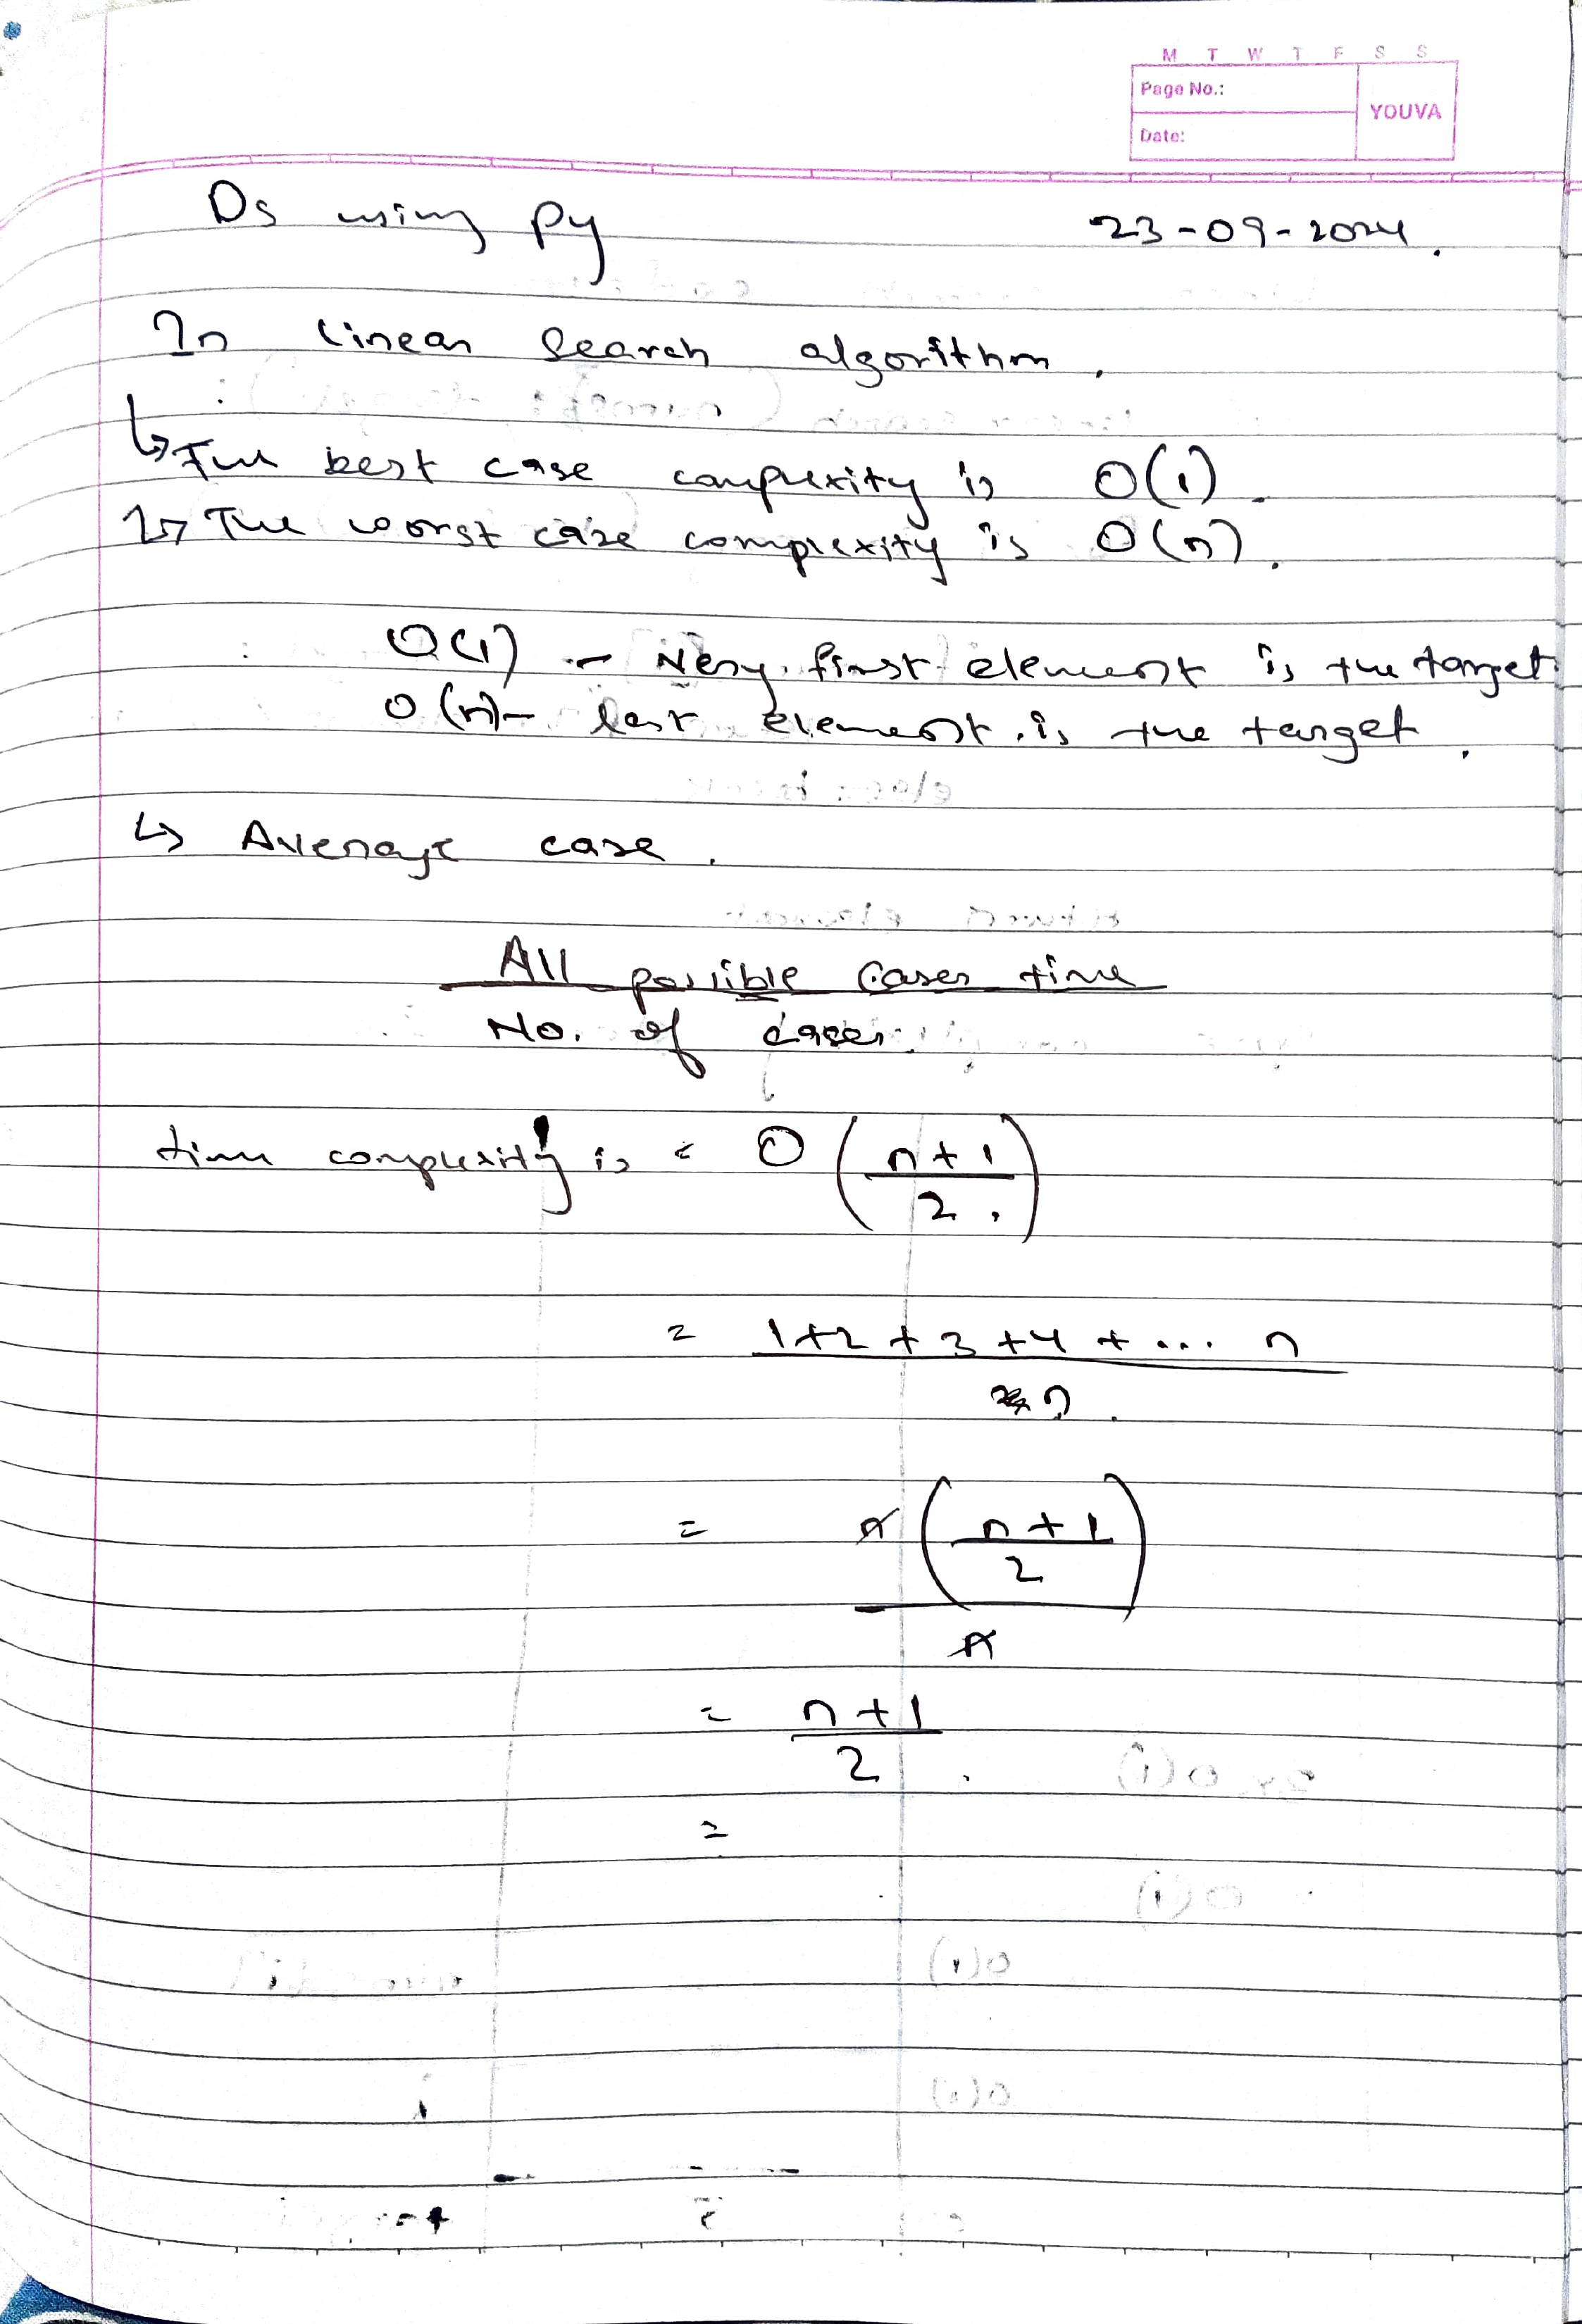 M T W T F S S
Page No.:
YOUVA
Date:
Ds using Py 23-09-2024.
In linear search algorithm.
↳ The best case complexity is O(1).
↳ The worst case complexity is O(n).
O(1) - Very first element is the target
O(n) - last element is the target.
↳ Average case.
All possible cases time
No. of cases
time complexity is = O (n+1
2.)
= 1+2+3+4+... n
n.
= n (n+1
2)
n
= n+1
2.
=